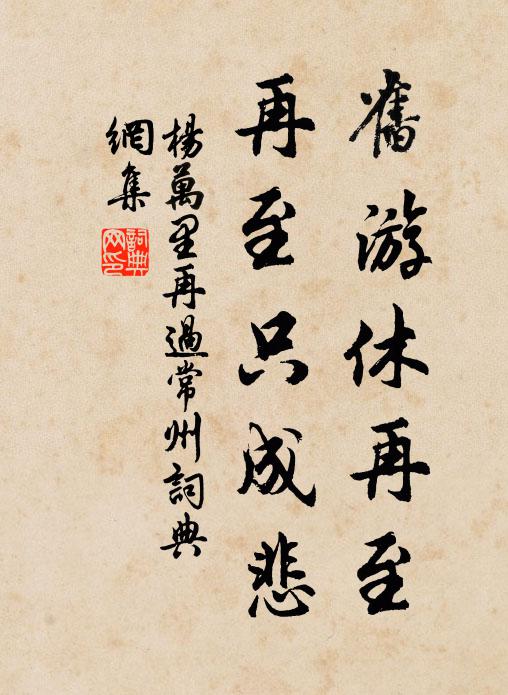 舊游休再至
再至只成悲
楊萬里再過常州詞典
網集
詞典
网印